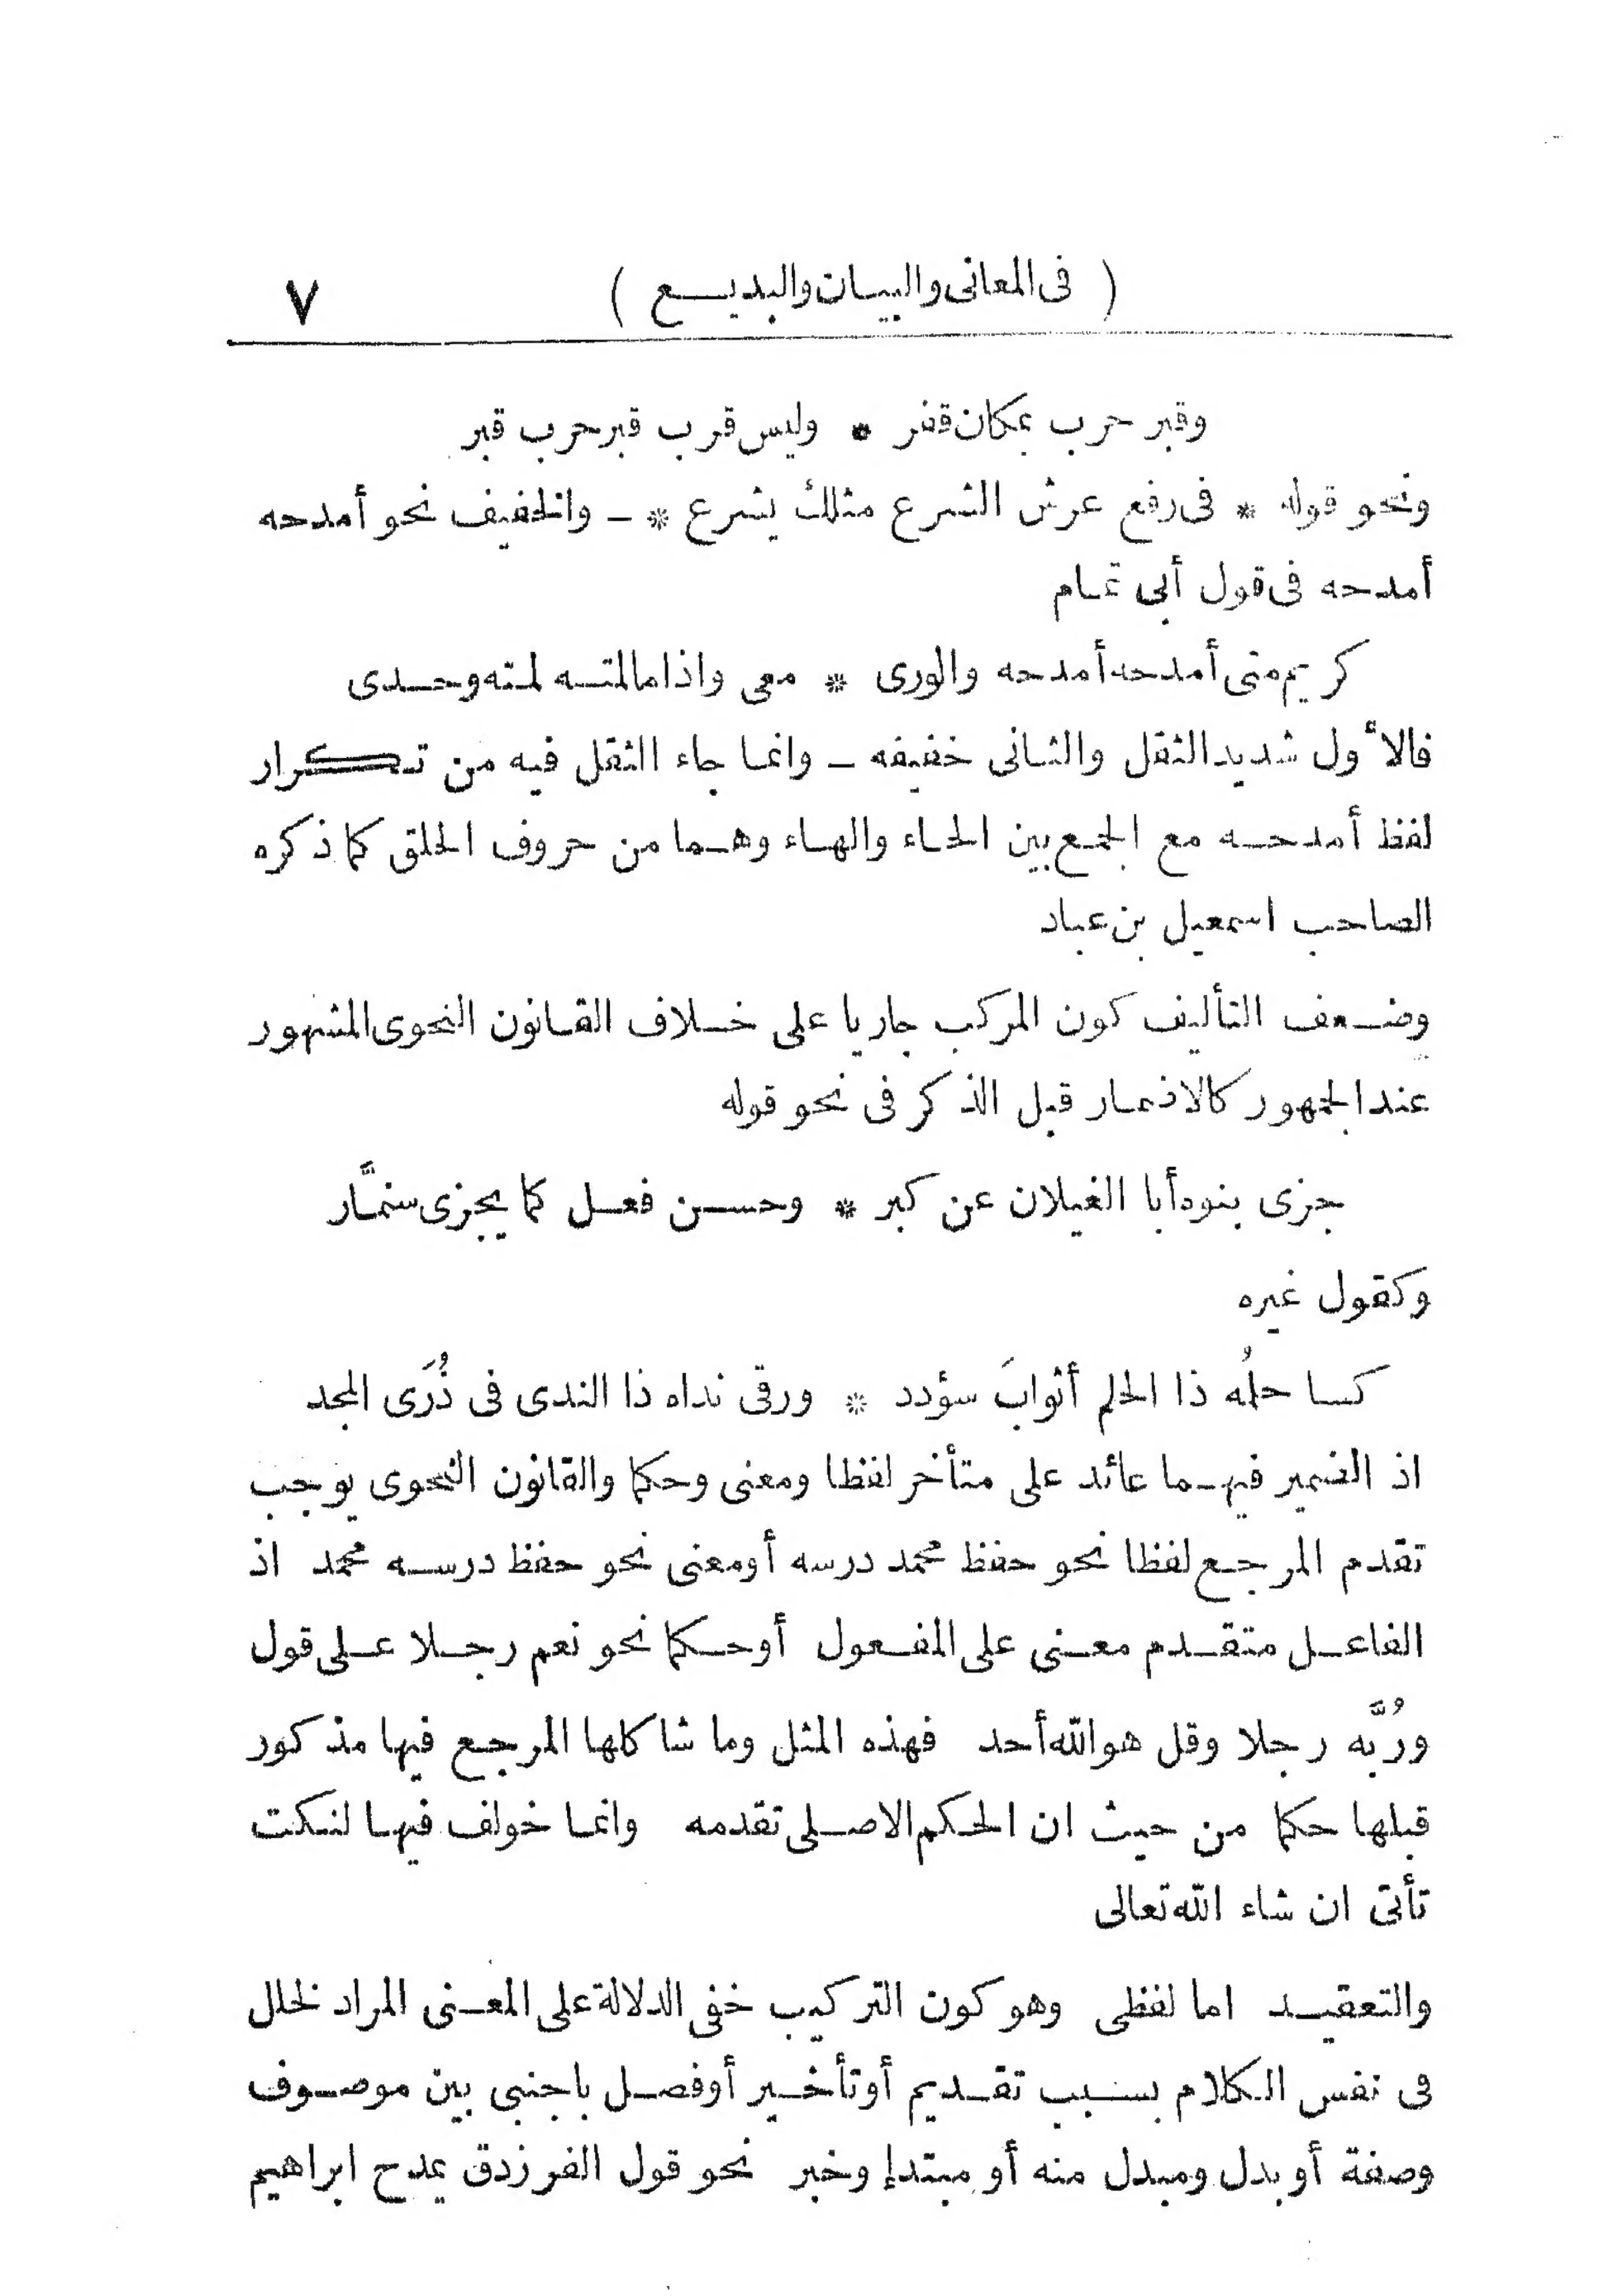 ( فى المعانى والبيان والبديع ) ٧
وقبر حرب بمكان قفر * وليس قرب قبر حرب قبر
ونحو قوله * فى رفع عرش الشرع مثلك يشرع * ـ والخفيف نحو أمدحه
أمدحه فى قول أبى تمام
كريم متى أمدحه أمدحه والورى * معى واذا ما لمته لمته وحدى
فالأول شديد الثقل والثانى خفيفه ـ وانما جاء الثقل فيه من تكرار
لفظ أمدحه مع الجمع بين الحاء والهاء وهما من حروف الحلق كما ذكره
الصاحب اسمعيل بن عباد
وضعف التأليف كون المركب جاريا على خلاف القانون النحوى المشهور
عند الجمهور كالاضمار قبل الذكر فى نحو قوله
جزى بنوه أبا الغيلان عن كبر * وحسن فعل كما يجزى سنمَّار
وكقول غيره
كسا حلمُه ذا الحلم أثوابَ سؤدد * ورقى نداه ذا الندى فى ذُرَى المجد
اذ الضمير فيهما عائد على متأخر لفظا ومعنى وحكما والقانون النحوى يوجب
تقدم المرجع لفظا نحو حفظ محمد درسه أو معنى نحو حفظ درسه محمد اذ
الفاعل متقدم معنى على المفعول أو حكما نحو نعم رجلا على قول
ورُبَّه رجلا وقل هو الله أحد فهذه المثل وما شاكلها المرجع فيها مذكور
قبلها حكما من حيث ان الحكم الاصلى تقدمه وانما خولف فيها لنكت
تأتى ان شاء الله تعالى
والتعقيد اما لفظى وهو كون التركيب خفى الدلالة على المعنى المراد لخلل
فى نفس الكلام بسبب تقديم أو تأخير أو فصل باجنبى بين موصوف
وصفة أو بدل ومبدل منه أو مبتدإ وخبر نحو قول الفرزدق يمدح ابراهيم